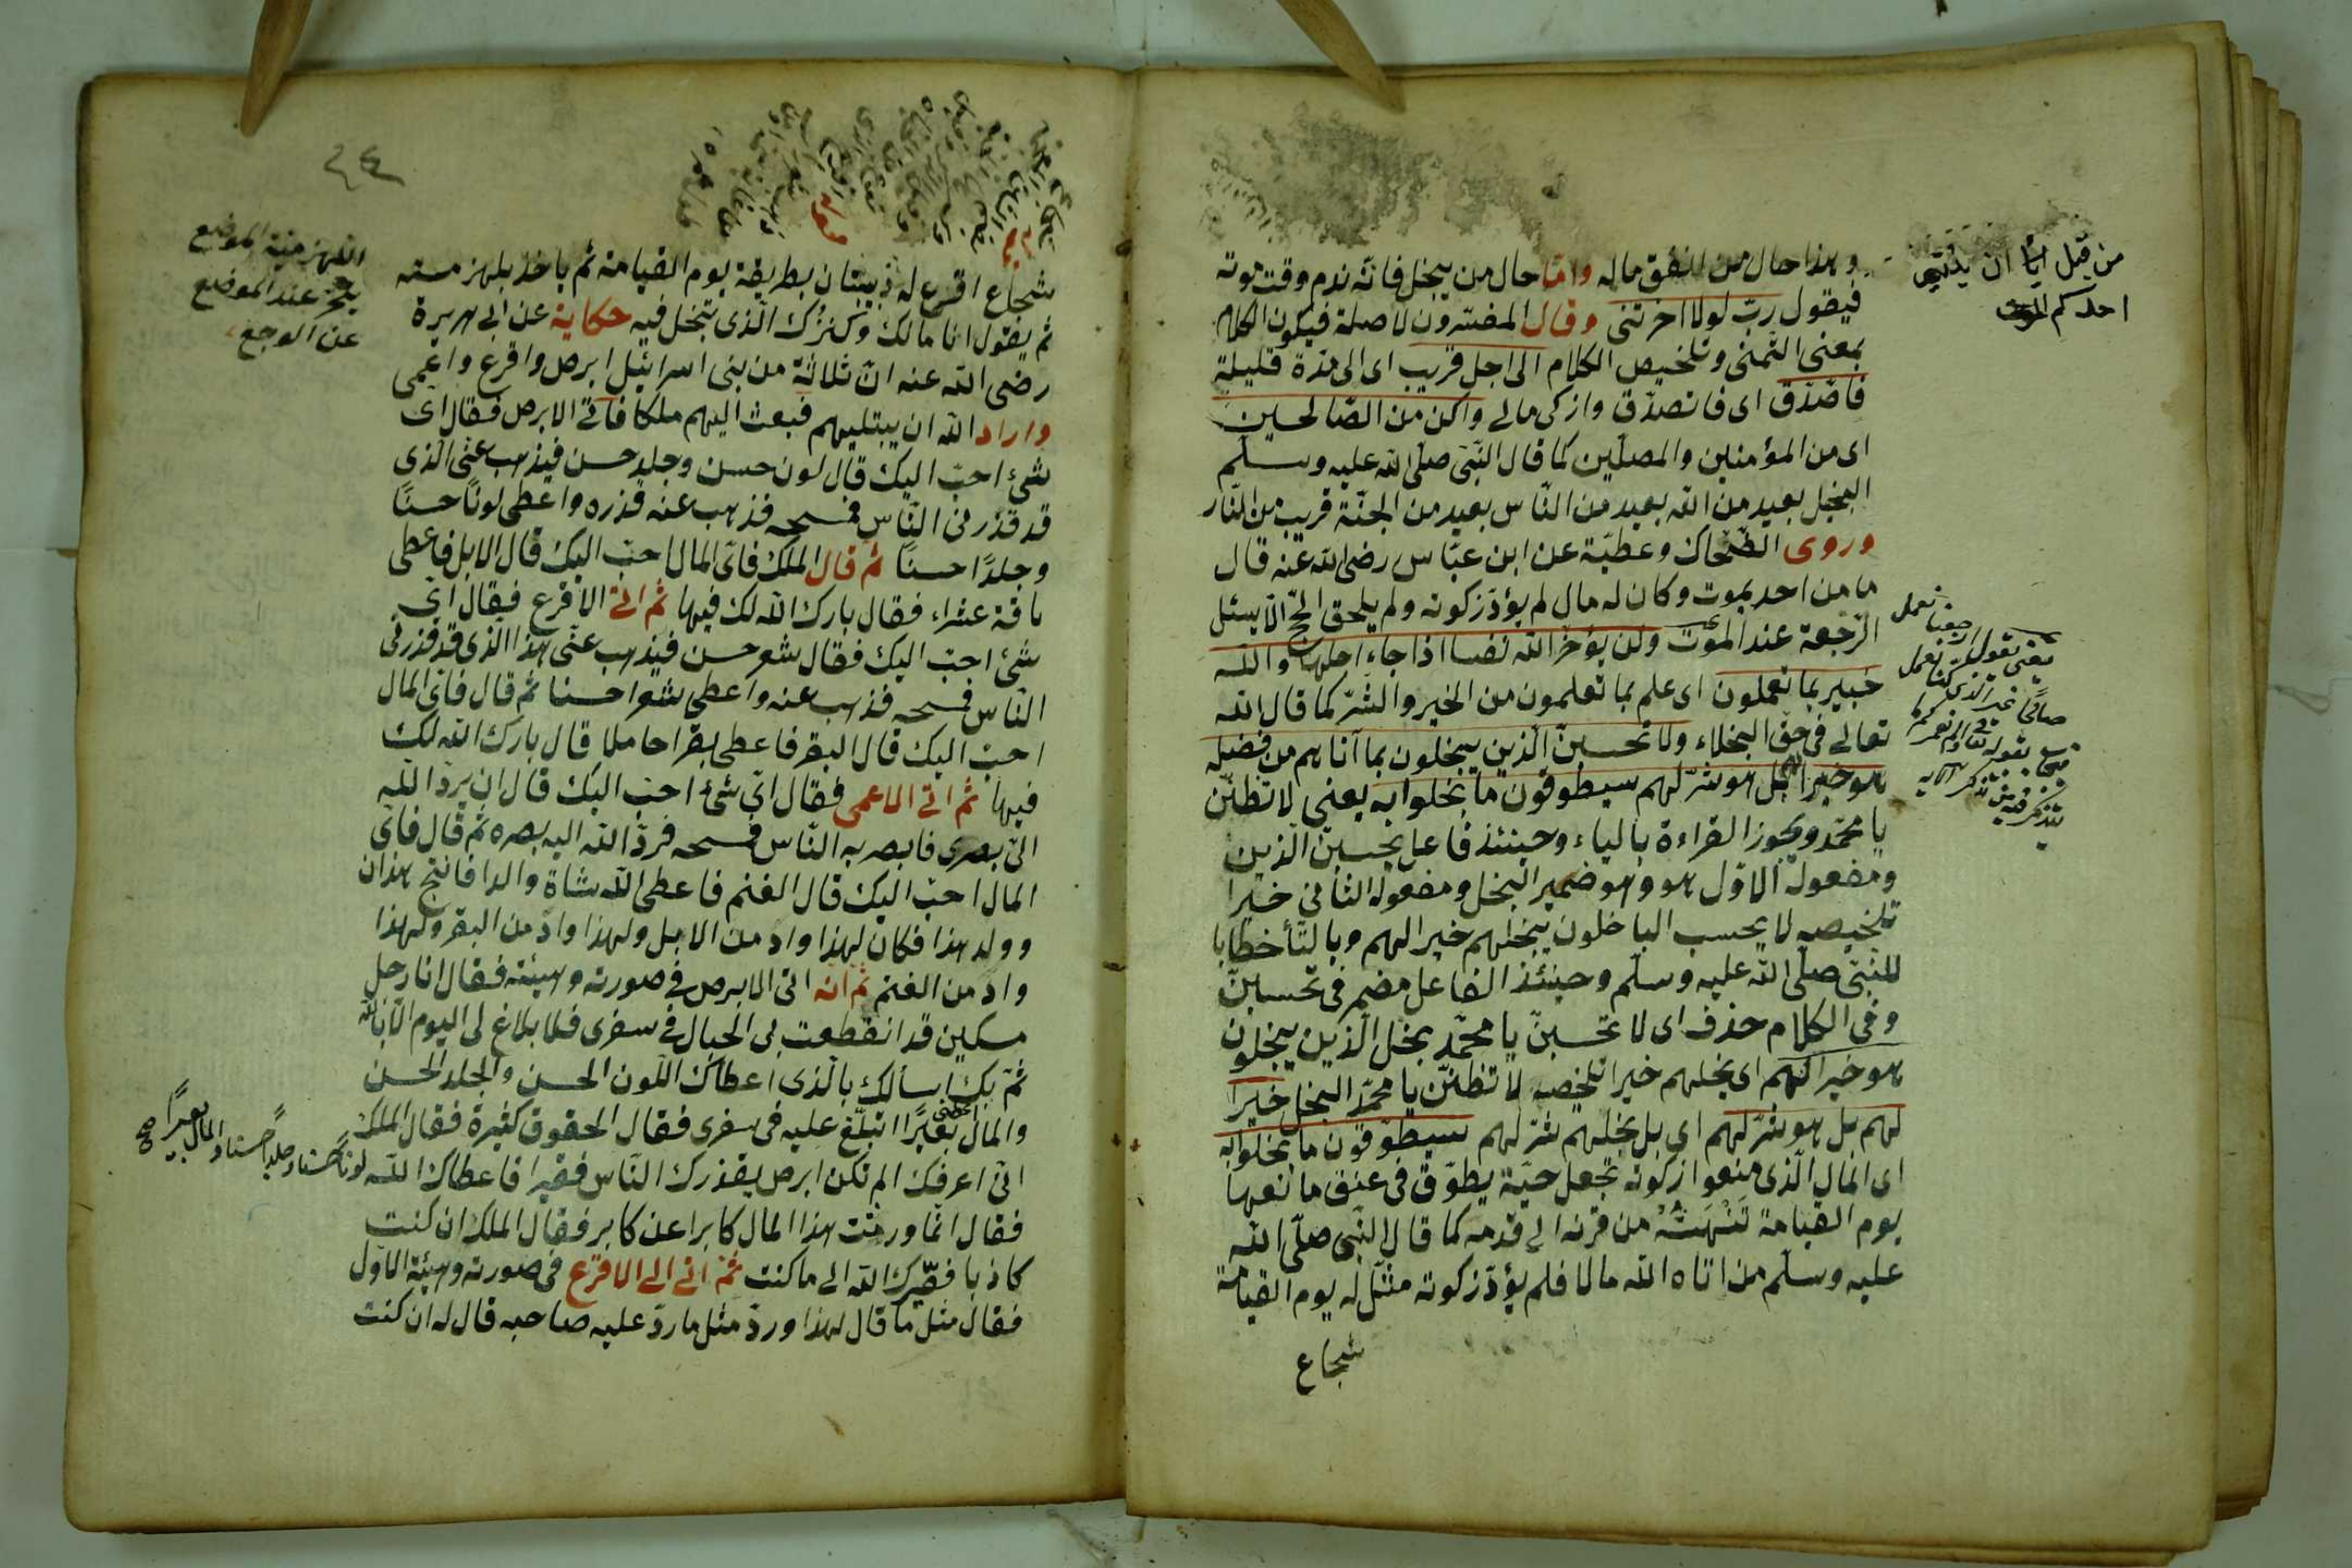 وهذا حال من انفق ماله واما حال من يبخل فانه ندم وقت موته
فيقول رب لولا اخرتنى وقال المفسرون لا صلة فيكون الكلام
بمعنى التمنى وتلخيص الكلام الى اجل قريب اى الى مدة قليلة
فاصدق اى فاتصدق وازكى مالى واكن من الصالحين
اى من المؤمنين والمصلين كما قال النبى صلى الله عليه وسلم
البخيل بعيد من الله بعيد من الناس بعيد من الجنة قريب من النار
وروى الضحاك وعطية عن ابن عباس رضى الله عنه قال
ما من احد يموت وكان له مال لم يؤد زكوته ولم يلحق الحج الا يسئل
الرجعة عند الموت ولن يؤخر الله نفسا اذا جاء اجلها والله
خبير بما تعملون اى علم بما تعلمون من الخير والشر كما قال الله
تعالى فى حق البخلاء ولا تحسبن الذين يبخلون بما آتاهم من فضله
هو خيرا لهم بل هو شر لهم سيطوقون ما بخلوا به يعنى لا تظنن
يا محمد ويجوز القراءة بالياء وحينئذ فاعل يحسبن الذين
ومفعوله الاول هو وهو ضمير البخل ومفعوله الثانى خيرا
تلخيصه لا يحسب الباخلون ببخلهم خيرا لهم وبالتأ خطابا
للنبى صلى الله عليه وسلم وحينئذ الفاعل مضمر فى تحسابن
وفى الكلام حذف اى لا تحسبن يا محمد بخل الذين يبخلون
هو خيرا لهم اى بخلهم خيرا تلخيصه لا تظنن يا محمد البخل خيرا
لهم بل هو شر لهم اى بل بخلهم شر لهم سيطوقون ما بخلوا به
اى المال الذى منعوا زكوته تجعل حية يطوق فى عنق مانعها
يوم القيامة تنهشه من قرنه الى قدمه كما قال النبى صلى الله
عليه وسلم من اتاه الله مالا فلم يؤد زكوته مثل له يوم القيامة
شجاع
من قبل ان يأتى
احدكم الموت
شجاع اقرع له ذبيبتان بطريقه يوم القيامة ثم ياخذ بلهزمته
ثم يقول انا مالك وكنزك الذى تبخل فيه حكاية عن ابى هريرة
رضى الله عنه ان ثلاثة من بنى اسرائيل ابرص واقرع واعمى
واراد الله ان يبتليهم فبعث اليهم ملكا فاتى الابرص فقال اى
شئ احب اليك قال لون حسن وجلد حسن فيذهب عنى الذى
قد قذرنى الناس فمسحه فذهب عنه قذره واعطى لونا حسنا
وجلدا حسنا ثم قال الملك فاى المال احب اليك قال الابل فاعطى
ناقة عشراء فقال بارك الله لك فيها ثم اتى الاقرع فقال اى
شئ احب اليك فقال شعر حسن فيذهب عنى هذا الذى قد قذرنى
الناس فمسحه فذهب عنه واعطى شعرا حسنا ثم قال فاى المال
احب اليك قال البقر فاعطى بقرا حاملا قال بارك الله لك
فيها ثم اتى الاعمى فقال اى شئ احب اليك قال ان يرد الله
الى بصرى فابصر به الناس فمسحه فرد الله اليه بصره ثم قال فاى
المال احب اليك قال الغنم فاعطى الله شاة والدا فانتج هذان
وولد هذا فكان لهذا واد من الابل ولهذا واد من البقر ولهذا
واد من الغنم ثم انه اتى الابرص فى صورته وهيئته فقال انا رجل
مسكين قد انقطعت بى الحبال فى سفرى فلا بلاغ لى اليوم الا بالله
ثم بك اسألك بالذى اعطاك اللون الحسن والجلد الحسن
والمال بعيرا اتبلغ عليه فى سفرى فقال الحقوق كثيرة فقال الملك
انى اعرفك الم تكن ابرص يقذرك الناس فقيرا فاعطاك الله
فقال انما ورثت هذا المال كابرا عن كابر فقال الملك ان كنت
كاذبا فصيرك الله الى ما كنت ثم اتى الى الاقرع فى صورته وهيئة الاول
فقال مثل ما قال لهذا ورد مثل ما رد عليه صاحبه قال له ان كنت
عند الموضع
عن الوجع
لونا حسنا وجلدا حسنا والمال بعيرا صح